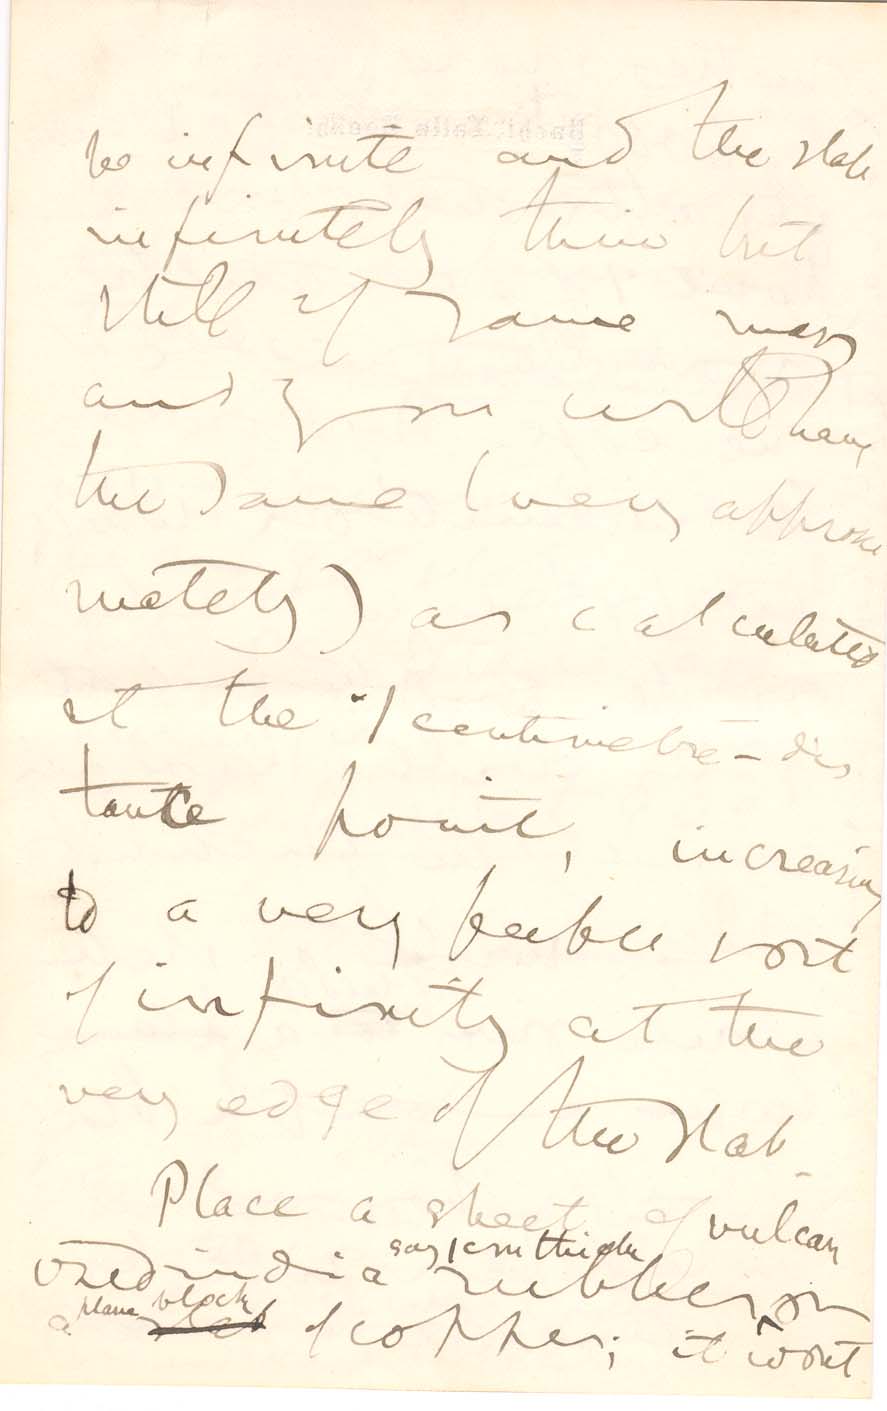 be infinite and the slab
infinitely thin but
still of same mass
and you will have
the same (very approxi
mately) as calculated
at the ·1 centimetre-dis
tance point, increasing
to a very feeble sort
of infinity at the
very edge of the slab.
Place a sheet of vulcan
ized india rubber on
say 1 cm thick
a plane block of copper; it wont